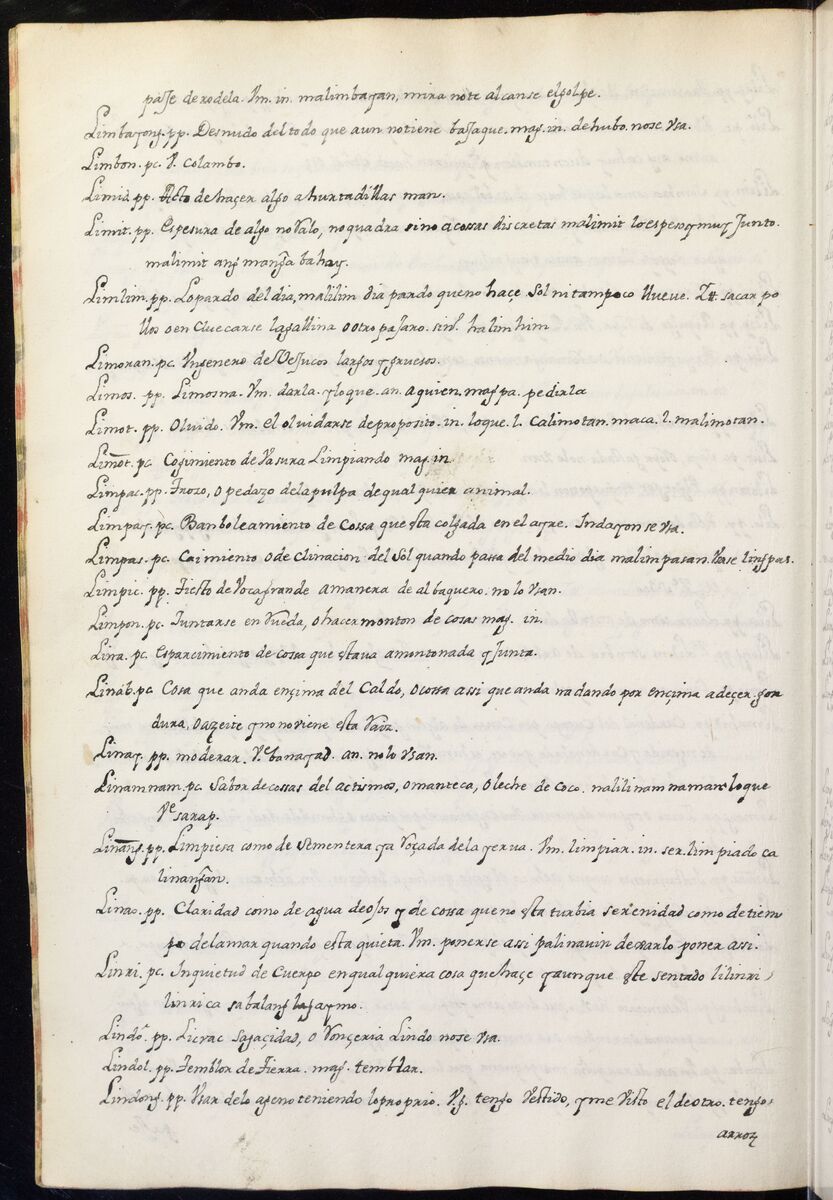 passe de rodela. Vm. in. malimbagan, mira note alcanse elgolpe.
Limbagong. pp. Desnudo del todo que aun notiene baxaque. mag. in. dehubo. nose vsa.
Limbon. pc. V. colambo.
Limid. pp. Acto dehaçer algo ahurtadillas man.
Limit. pp. Espesura de algo noralo, noquadra sino acossas discretas malimit loespesoymuy Junto.
malimit ang manga bahay.
Limlim. pp. Lopardo del dia, malilim dia pardo quenohaçe Sol nitampoco llueve. Itt. sacar po
llos o en cluecarse lagallina o otro paxaro. sin.l halimhim
Limoran. pc. Vngenero de Vejucos largos ygruesos.
Limos. pp. Limosna. Vm. darla. yloque. an. aquien. magpa. pedirla
Limot. pp. Olvido. Vm. el olvidarse deproposito. in. loque. l. Calimotan. maca. l. malimotan.
Limot. pc. Cogimiento de Vasura Limpiando mag. in.
Limpac. pp. Troso, o pedazo dela pulpa de qual quier animal.
Limpay. pc. Bamboleamiento de cossa que esta colgada en el ayre. Indayon se vsa.
Limpas. pc. Caimiento o de clinacion del Sol quando passa del medio dia malimpasan. Verse lingpas.
Limpic. pp. Tiesto de Vocagrande amanera de albaquero. no lo vsan.
Limpon. pc. Juntarse en rueda, o hacer monton de cosas mag. in.
Lina. pc. Esparcimiento de cossa que estava amontonada y Junta.
Linab. pc Cosa que anda ençima del Caldo, o cossa assi que anda nadando por ençima adeçer. gor
dura, o azeite yno noviene esta raiz.
Linag. pp. moderar. Ve banayad. an. nolo vsan.
Linamnam. pc. Sabor decossas del actismos, o manteca, o leche de Coco. nalilinamnaman loque
Ve sarap.
Linang. pp. Limpiesa como de sementera ya roçada dela yerva. Vm. limpiar. in. ser. limpiado ca
linangan.
Linao. pp. Claridad como de agua deojos y de cossa queno esta turbia serenidad como detiem
po delamar quando esta quieta. Vm. ponerse assi palinavin dexarlo poner assi.
Linri. pc. Inquietud de Cuerpo en qualquiera cosa que haçe yaunque este sentado lilinri
linri ca sabalang lagaymo.
Lindo. pp. Licvac sagaçidad, o ronçeria Lindo nose vsa.
Lindol. pp. Temblor de Tierra. mag. temblar.
Lindong. pp. Vsar delo ageno teniendo lopropio. Vg. tengo Vestido, yme Visto el deotro. tengo
arroz